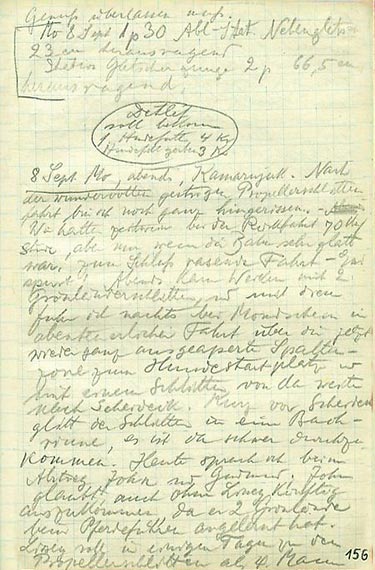 Genuß überlassen muß.
Mo 8 Sept 1p30 Abl-Stat. Nebengletsch
23 cm herausragend
Station Gletscherzunge 2p 66,5 cm
herausragend.
Detlef
soll bekom
1 Hundefutter 4 Kg
3 K.
8 Sept. Mo, abends, Kamarujuk. Nach
der wundervollen gestrigen Propellerschlitten
fahrt bin ich noch ganz hingerissen. -
Wir hatten gestern bei der Rückfahrt
aber nun wenn die Bahn sehr glatt
war. zum Schluß rasende Fahrt -
Abends kam Werden mit 2
Grönländerschlitten, u mit diesen
fuhr ich nachts bei Mondschein in
abenteuerlicher Fahrt über die jetzt
wieder ganz ausgeaperte Spalten-
zone zum Hundestartplatz u
mit einem Schlitten von da weiter
nach Scheideck. Kurz vor Scheideck
glitt der Schlitten in eine Bach-
rinne, es ist da schwer durchzu-
kommen. Heute sprach ich beim
Abstieg Johan u Gudmund. John
glaubt auch ohne
auszukommen da er 2 Grönländer
beim Pferdeführen angelernt hat.
soll in einigen Tagen zu den
Propellerschlitten als 4. Mann
156